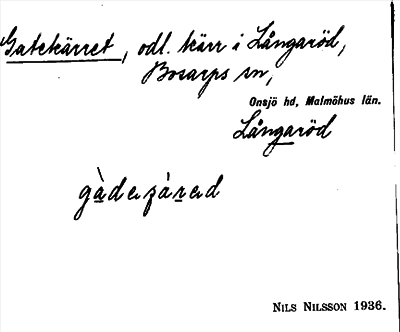 Gatekärret, odl. kärr i Långaröd,
Bosarps sn,
Onsjö hd, Malmöhus län.
Långaröd
NILS NILSSON 1936.